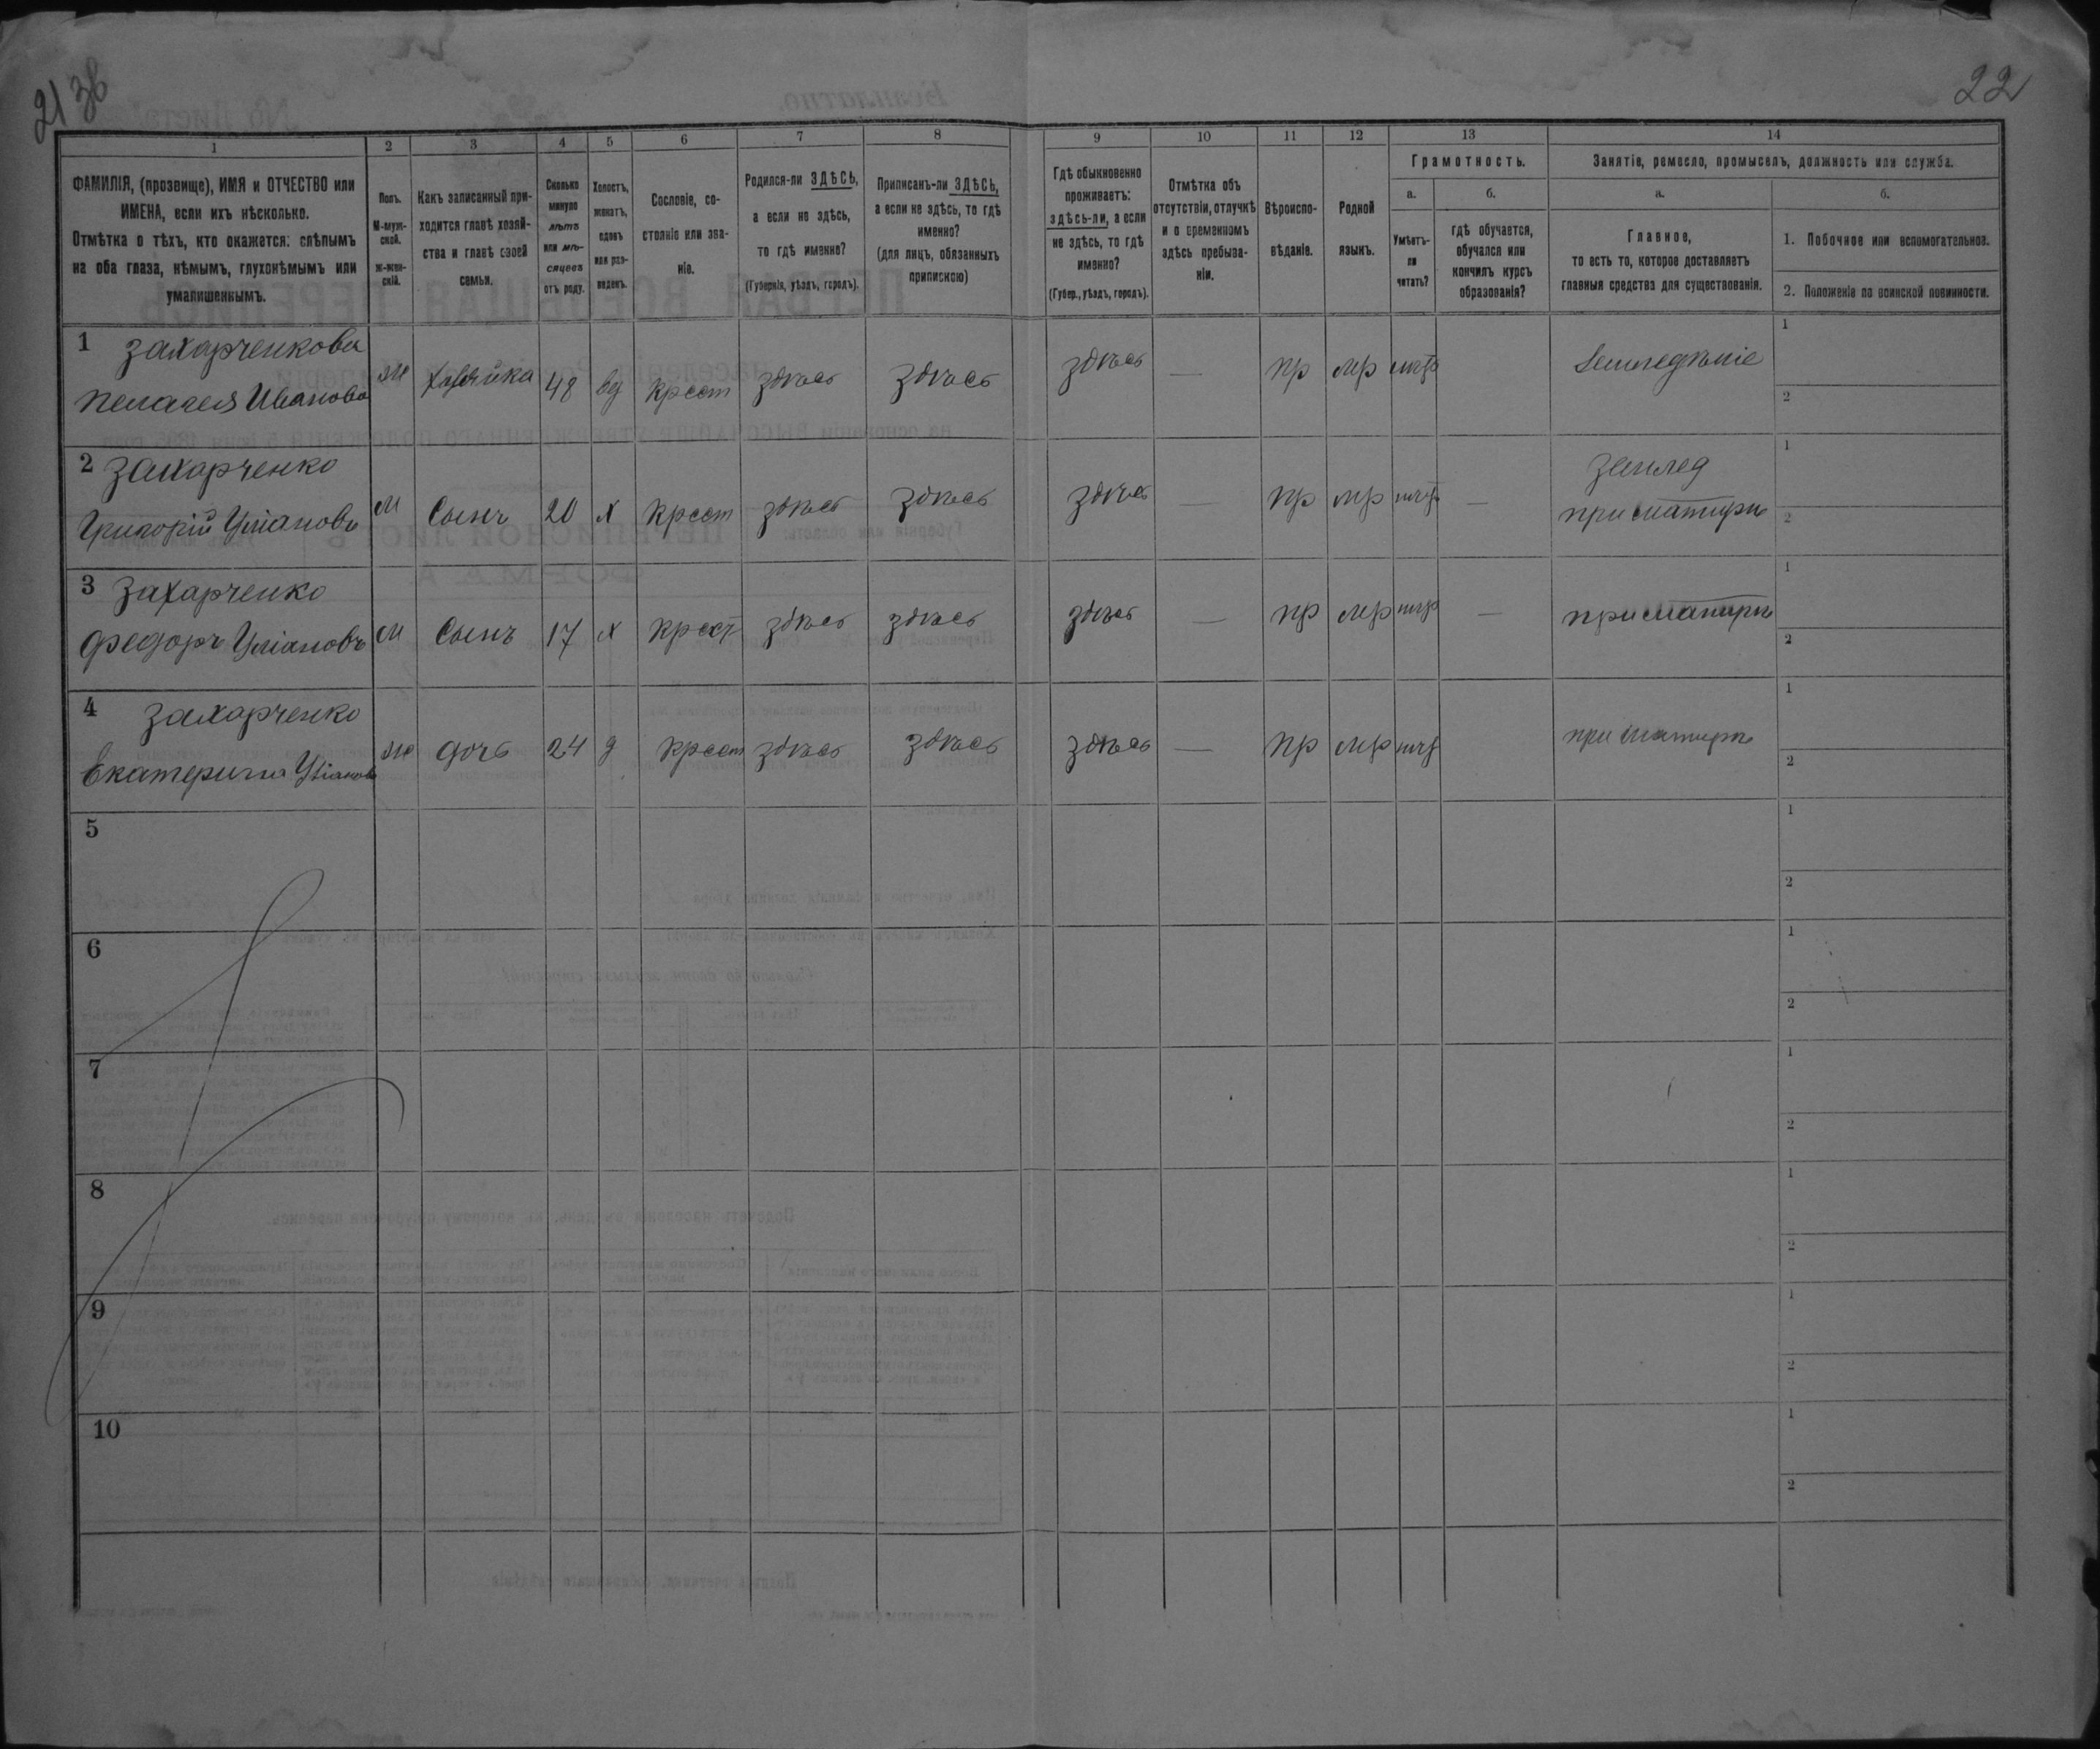 21 зв
22
1 2 3 4 5 6 7 8 9 10 11 12 13 14
ФАМИЛІЯ, (прозвище), ИМЯ и ОТЧЕСТВО или
ИМЕНА, если ихъ нѣсколько.
Отмѣтка о тѣхъ, кто окажется: слѣпымъ
на оба глаза, нѣмымъ, глухонѣмымъ или
умалишеннымъ.
Полъ.
М-муж-
ской.
Ж-жен-
скій.
Какъ записанный при-
ходится главѣ хозяй-
ства и главѣ своей
семьи.
Сколько
минуло
лѣтъ
или мѣ-
сяцевъ
отъ роду.
Холостъ,
женатъ,
вдовъ
или раз-
веденъ.
Сословіе, со-
стояніе или зва-
ніе.
Родился-ли ЗДѢСЬ,
а если не здѣсь,
то гдѣ именно?
(Губернія, уѣздъ, городъ).
Приписанъ-ли ЗДѢСЬ,
а если не здѣсь, то гдѣ
именно?
(для лицъ, обязанныхъ
припискою)
Гдѣ обыкновенно
проживаетъ:
здѣсь-ли, а если
не здѣсь, то гдѣ
именно?
(Губер., уѣздъ, городъ).
Отмѣтка объ
отсутствіи, отлучкѣ
и о временномъ
здѣсь пребыва-
ніи.
Вѣроиспо-
вѣданіе.
Родной
языкъ.
Грамотность.
а.
Умѣетъ-
ли
читать?
б.
гдѣ обучается,
обучался или
кончилъ курсъ
образованія?
Занятіе, ремесло, промыселъ, должность или служба.
а.
Главное,
то есть то, которое доставляетъ
главныя средства для существованія.
б.
1. Побочное или вспомогательное.
2. Положеніе по воинской повинности.
1 Захарченкова
Пелагея Иванова ж хозяйка 48 вд крест здѣсь здѣсь здѣсь — пр мр Земледѣліе 1 2
2 Захарченко
Григорій Уліановъ м Сынъ 20 х крест здѣсь здѣсь здѣсь — пр мр — Землед
при матери 1 2
3 Захарченко
Федоръ Уліановъ м Сынъ 17 х крест здѣсь здѣсь здѣсь — пр мр — при матери 1 2
4 Захарченко
Екатерина Уліанова ж дочь 24 д крест здѣсь здѣсь здѣсь — пр мр при матери 1 2
5 1 2
6 1 2
7 1 2
8 1 2
9 1 2
10 1 2